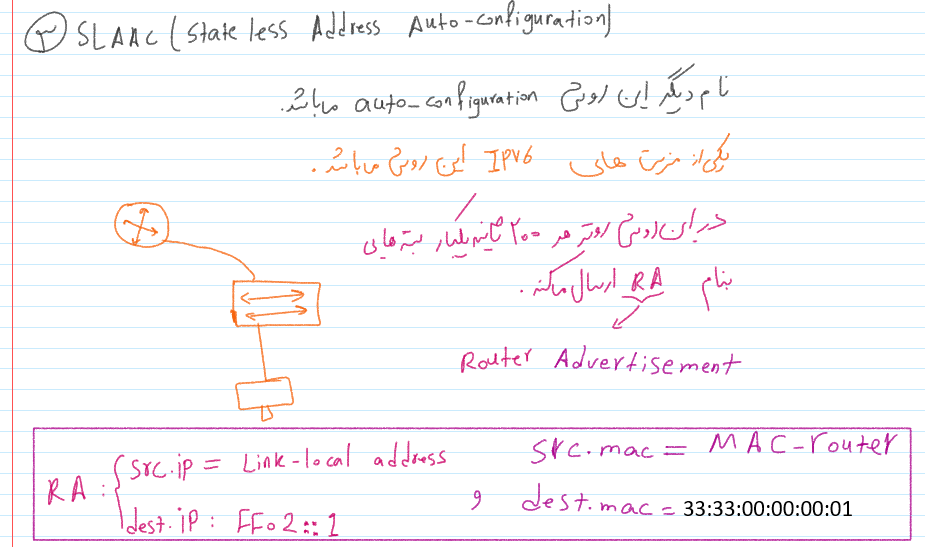 ③ SLAAC (Stateless Address Auto-configuration)
نام دیگر این روش auto-configuration میباشد.
یکی از مزیت های IPV6 این روش میباشد.
در این روش روتر هر ۲۰۰ ثانیه یکبار بسته هایی
بنام RA ارسال میکند.
Router Advertisement
RA : src.ip = Link-local address src.mac = MAC-router
dest.ip : FF02::1 و dest.mac = 33:33:00:00:00:01